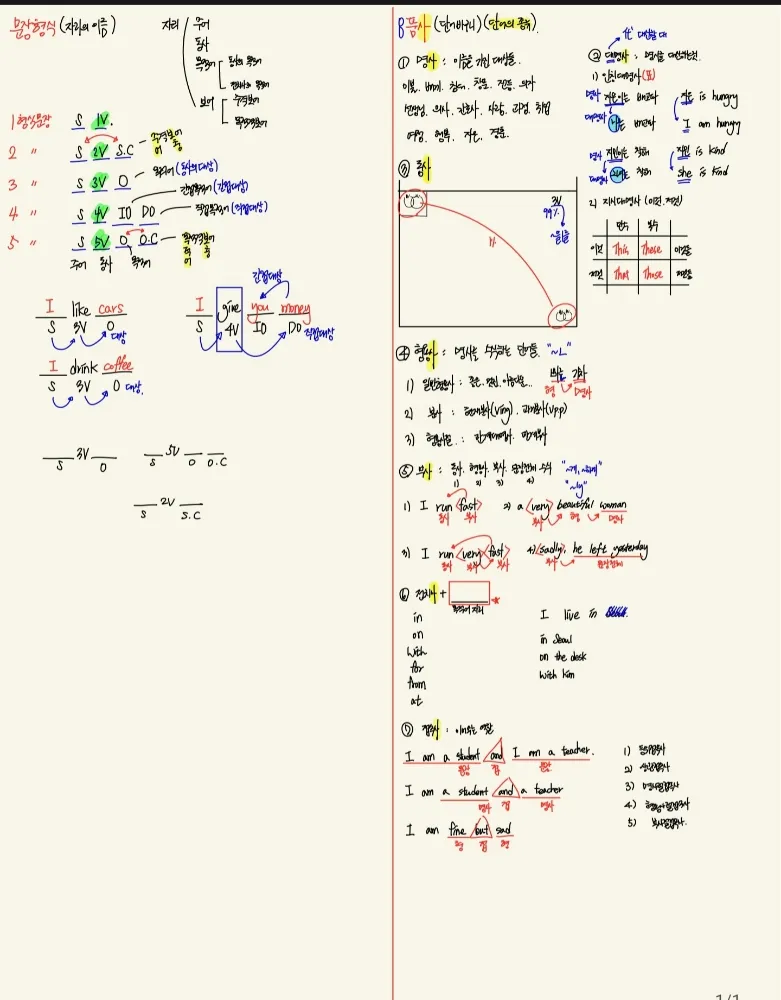 문장형식 (자리의 이름)
자리 주어
동사
목적어 동사의 목적어
전치사의 목적어
보어 주격보어
목적격보어
1형식문장 S 1V.
2 〃 S 2V S.C 주격보어
3 〃 S 3V O 목적어 (동사의 대상)
4 〃 S 4V IO DO 간접목적어 (간접대상)
직접목적어 (직접대상)
5 〃 S 5V O O.C 목적격보어
주어 동사 목적어
I like cars
S 3V O 대상
I give you money
S 4V IO DO 직접대상
간접대상
I drink coffee
S 3V O 대상.
S 3V O
S 5V O O.C
S 2V S.C
8품사 (단어바구니) (단어의 종류).
① 명사 : 이름을 가진 대상들.
③ 동사
3V
99%
~을/를
② 대명사 : 명사를 대신하는것.
1) 인칭대명사 (표)
명사 지은이는 배고프다
대명사 나는 배고프다
지은 is hungry
I am hungry
명사 지민이는 착해
대명사 그녀는 착해
지민 is kind
she is kind
2) 지시대명사 (이것 저것)
단수 복수
이것 This These 이것들
저것 That Those 저것들
④ 형용사 : 명사를 수식하는 단어들. "~ㄴ"
1) 일반형용사 :
형 명사
2) 분사 : 현재분사(Ving). 과거분사(Vpp)
3) 형용사절 :
⑤ 부사 : 동사. 형용사. 부사. 문장전체 수식 "~게, ~하게"
1) 2) 3) 4) "~ly"
1) I run <fast>
동사 부사
2) a <very> beautiful woman
부사 형 명사
3) I run <very> <fast>
동사 부사 부사
4) <sadly>, he left yesterday
부사 문장전체
⑥ 전치사 +
목적어 자리
in
on
with
for
from
at
I live in Seoul.
in Seoul
on the desk
with kim
⑦ 접속사 : 이어주는 역할
I am a student and I am a teacher.
문장 접 문장
I am a student and a teacher
명사 접 명사
I am fine but sad
형 접 형
1) 등위접속사
2) 상관접속사
3) 명사절접속사
4) 형용사절접속사
5) 부사절접속사.
1/1